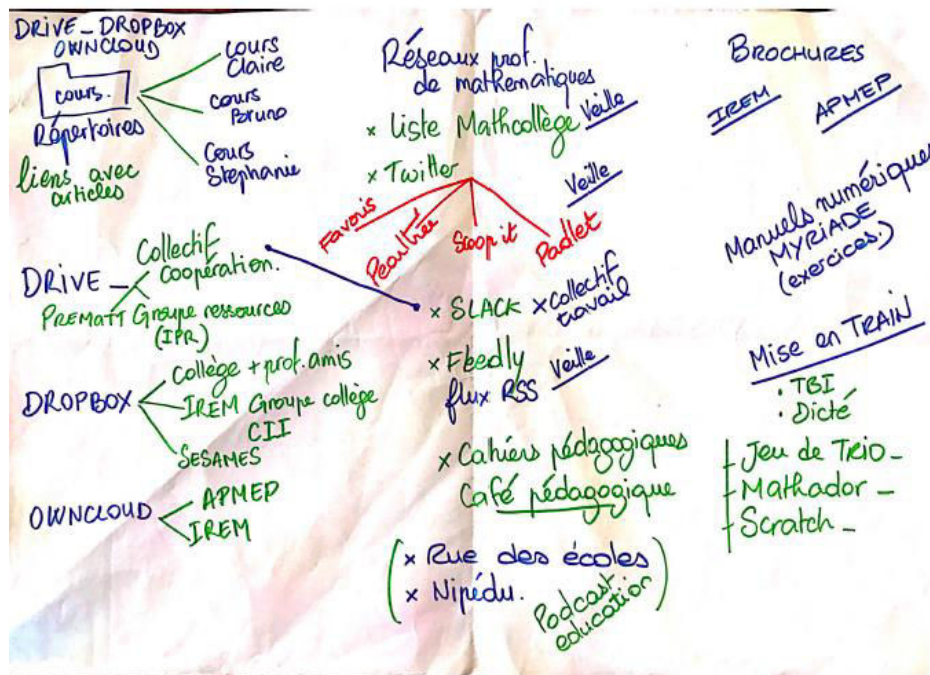 DRIVE_DROPBOX
OWNCLOUD
cours.
Répertoires
liens avec
articles
cours
Claire
cours
Bruno
Cours
Stephanie
DRIVE _
Collectif
coopération.
PREMaTT Groupe ressources
(IPR)
DROPBOX
Collège + prof. amis
IREM Groupe collège
CII
SESAMES
OWNCLOUD
APMEP
IREM
Réseaux prof.
de mathematiques
× Liste Mathcollège Veille
× Twitter Veille
Favoris
Pearltrées
Scoop it
Padlet
× SLACK × collectif
travail
× Feedly Veille
flux RSS
× Cahiers pédagogiques
Café pédagogique
(× Rue des écoles
× Nipédu.)
Podcast
education
BROCHURES
IREM APMEP
Manuels numériques
MYRIADE
(exercices.)
Mise en TRAIN
· TBI
· Dicté
- Jeu de TRIO _
- Mathador _
- Scratch _